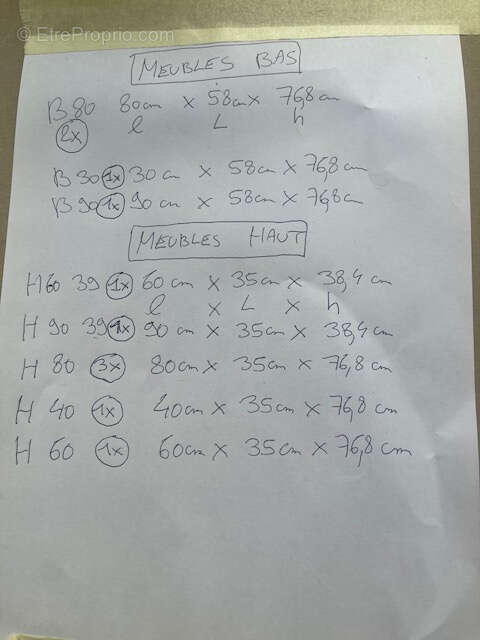 © EtreProprio.com
MEUBLES BAS
B 80 80cm x 58cm x 76,8 cm
2x l L h
B 30 1x 30 cm x 58cm x 76,8cm
B 90 1x 90 cm x 58cm x 76,8cm
MEUBLES HAUT
H60 39 1x 60 cm x 35cm x 38,4 cm
l x L x h
H 90 39 1x 90 cm x 35cm x 38,4 cm
H 80 3x 80cm x 35cm x 76,8 cm
H 40 1x 40cm x 35cm x 76,8 cm
H 60 1x 60cm x 35cm x 76,8 cm